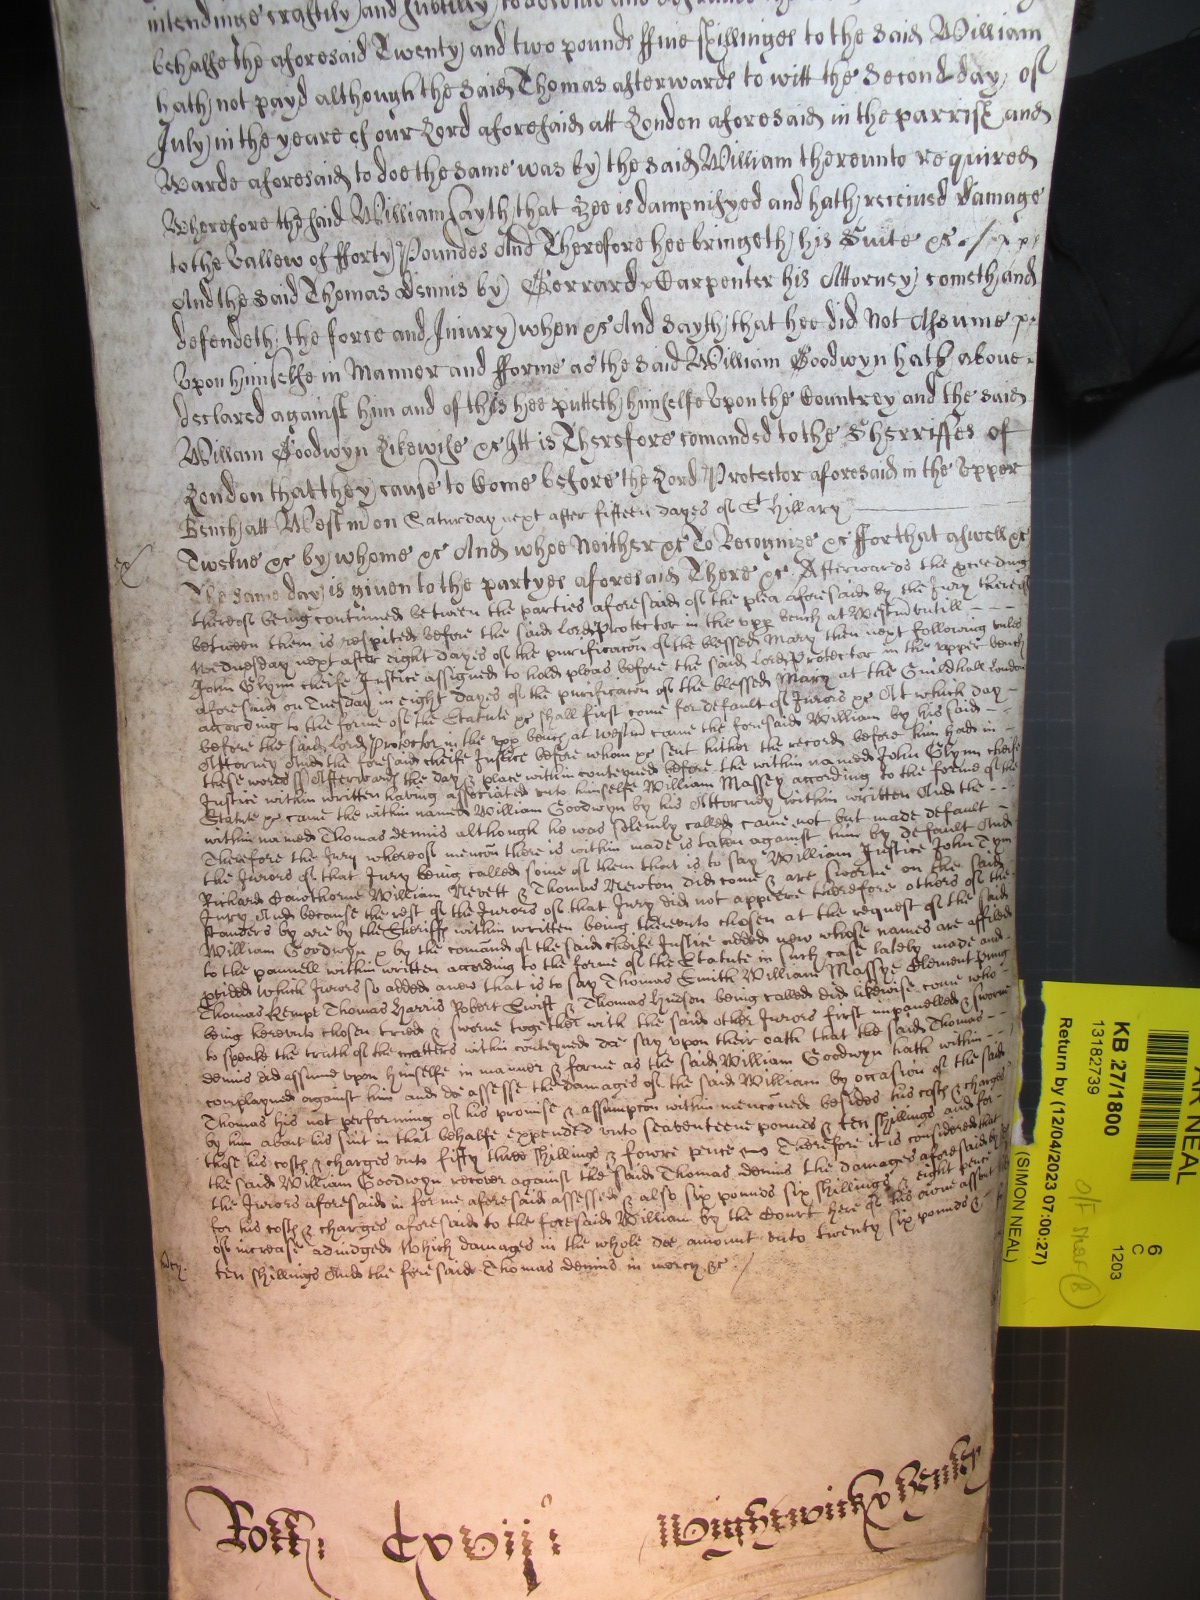 intendinge craftily and subtilly to deceive and defraude
behalfe the aforesaid Twenty and two pounds ffive shillinges to the said William
hath not payd although the said Thomas afterwards to witt the Second day of
July in the yeare of our Lord aforesaid att London aforesaid in the parrish and
Warde aforesaid to doe the same was by the said William thereunto required
Wherefore the said William sayth that hee is dampnifyed and hath received damage
to the vallew of fforty Poundes And Therefore hee bringeth his Suite &c
And the said Thomas Dennis by Gerrard Carpenter his Attorney cometh and
defendeth the force and Injury when &c And sayth that hee did not Assume
upon himselfe in Manner and fforme as the said William Goodwyn hath above
declared against him and of this hee putteth himselfe upon the Countrey and the said
William Goodwyn Likewise &c Itt is Therefore comanded to the Sherriffes of
London that they cause to Come before the Lord Protector aforesaid in the Upper
Bench att Westm on Saturday next after fifteen dayes of St Hillary
Twelve &c by whome &c And whoe Neither &c To Recognize &c fforthat aswell &c
The same day is given to the partyes aforesaid There &c Afterwards the proceeding
thereof being continued between the parties aforesaid of the plea aforesaid by the Jury thereof
between them is respited before the said Lord Protector in the upp bench at Westm untill
Wednesday next after eight dayes of the purificacon of the blessed Mary then next following unles
John Glynn cheife Justice assigned to hold pleas before the said Lord Protector in the upper bench
aforesaid on Tuesday in eight dayes of the purificacon of the blessed Mary at the Guildhall London
according to the forme of the Statute &c shall first come for default of Jurors &c At which day
before the said Lord Protector in the upp bench at Westm came the foresaid William by his said
Attorney And the foresaid cheife Justice before whom &c sent hither the record before him had in
these words ss Afterwards the day & place within conteyned before the within named John Glynn cheife
Justice within written having associated unto himselfe William Massey according to the forme of the
Statute &c came the within named William Goodwyn by his Attorney within written And the
within named Thomas dennis although he was solemly called came not but made default
Therefore the Jury whereof mencon there is within made is taken against him by default And
the Jurors of that Jury being called some of them that is to say William Justice John Pym
Richard Cawthorne William Nevett & Thomas Newton did come & are sworne on the said
Jury And because the rest of the Jurors of that Jury did not appeare therefore others of the
standers by are by the Sheriffs within written being thereunto chosen at the request of the said
William Goodwyn & by the comand of the said cheife Justice added new whose names are affiled
to the pannell within written according to the forme of the Statute in such case lately made and
pvided which Jurors so added anew that is to say Thomas Smith William Massye Clement Pung
Thomas Kempe Thomas Harris Robert Swift & Thomas Hudson being called did likewise come who
being hereunto chosen tried & sworne together with the said other Jurors first impanelled & sworne
to speake the truth of the matters within conteyned doe say upon their oath that the said Thomas
dennis did assume upon himselfe in manner & forme as the said William Goodwyn hath within
complayned against him and do assesse the damages of the said William by occasion of the said
Thomas his not performing of his promise & assumpcon within menconed besides his costs & charges
by him about his suit in that behalfe expended unto seaventeene pounds & ten shillings and for
those his costs & charges unto fifty three shillings & fowre pence Therefore it is considered that
the said William Goodwyn recover against the said Thomas dennis the damages aforesaid by
the Jurors aforesaid in forme aforesaid assessed & also six pounds six shillings & eight pence
for his costs & charges aforesaid to the foresaid William by the Court here of his owne assent
of increase adiudged Which damages in the whole doe amount unto twenty six pounds &
ten shillings And the foresaid Thomas dennis in mercy &c
Mcy
Rott Cxviij
Wightwick
KB 27/1800
13182739
Return by (12/04/2023 07:00:27)
(SIMON NEAL)
6
C
1203